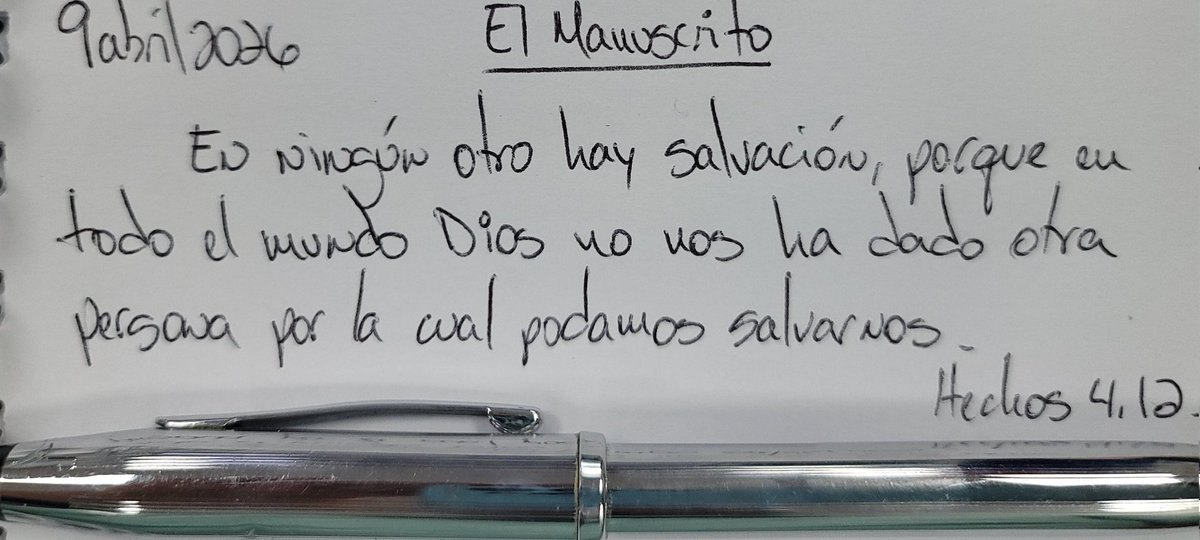 9 abril 2026
El Manuscrito
En ningún otro hay salvación, porque en
todo el mundo Dios no nos ha dado otra
persona por la cual podamos salvarnos.
Hechos 4.12.